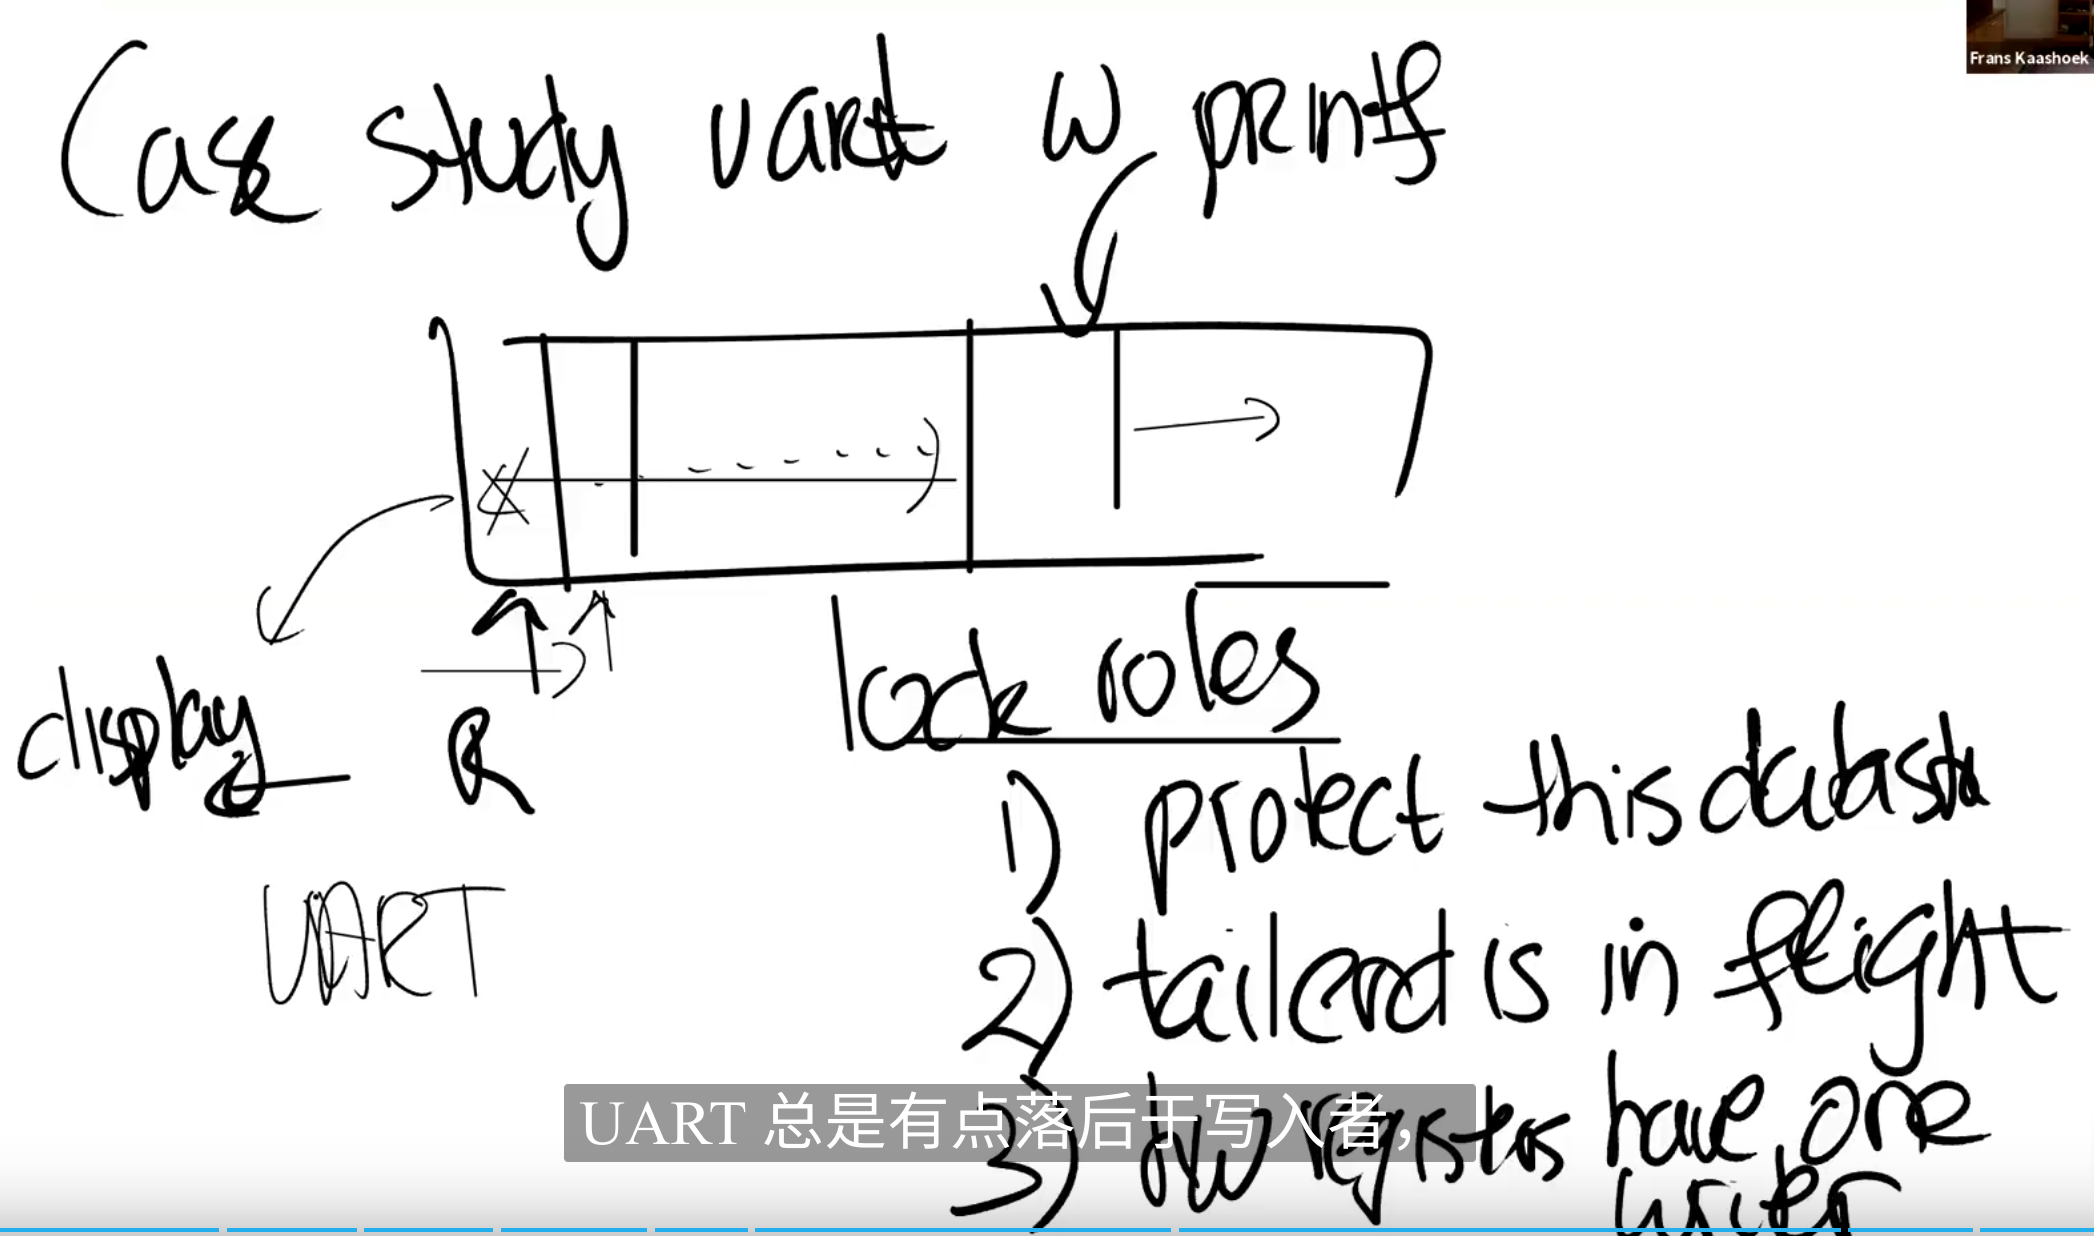 Frans Kaashoek
Case study uart w printf
lock roles
display R
1) protect this datastr
UART
2) tail end is in flight
3) hw registers have one
writer
UART 总是有点落后于写入者，